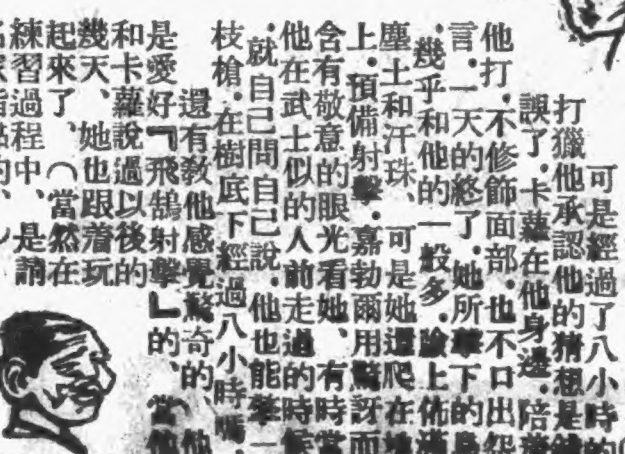 可是經過了八小時的
打獵他承認他的猜想是錯
誤了.卡蘿在他身邊.陪着
他打.不修飾面部.也不口出怨
言.一天的終了.她所擊下的鳥
.幾乎和他的一般多.臉上佈滿
塵土和汗珠、可是她還爬在地
上.預備射擊.嘉勃爾用驚訝而
含有敬意的眼光看她、有時當
他在武士似的人前走過的時候
.就自己問自己說.他也能擎一
枝槍.在樹底下經過八小時嗎.
還有教他感覺驚奇的、他
是愛好『飛鵠射擊』的、當他
和卡蘿說過以後的
幾天、她也跟着玩
起來了、（當然在
練習過程中、是請
名家指點的、）